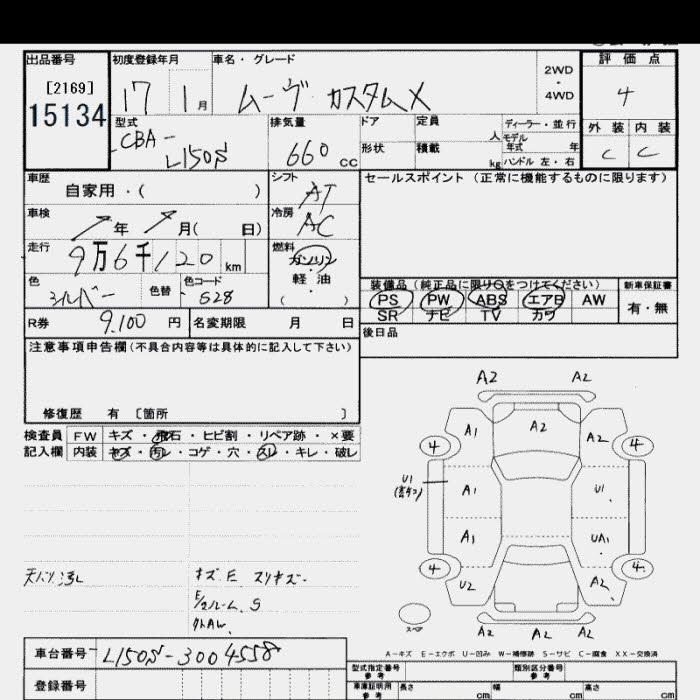 出品番号
[2169]
15134
初度登録年月
17 1月
車名・グレード
ムーヴ カスタムX
2WD
・
4WD
評価点
4
型式
CBA-
L150S
排気量
660 cc
ドア
定員
人
形状
積載
kg
ディーラー・並行
モデル
年式 年
ハンドル 左・右
外装 内装
C C
車歴
自家用・( )
シフト
AT
セールスポイント (正常に機能するものに限ります)
車検
年 月( 日)
冷房
AC
走行
9万6千120 km
燃料
ガソリン
・
軽油
( )
色
シルバー
色替
色コード
S28
装備品(純正品に限り○をつけてください)
PS PW ABS エアB AW
SR ナビ TV カワ
新車保証書
有・無
R券 9,100 円
名変期限 月 日
後日品
注意事項申告欄(不具合内容等は具体的に記入して下さい)
修復歴 有 〔箇所 〕
検査員 FW キズ・飛石・ヒビ割・リペア跡・×要
記入欄 内装 キズ・汚レ・コゲ・穴・スレ・キレ・破レ
A2 A2
A1 A2 A2
4 4
U1
A1 U1
A1 UA1
4 4
U2 A2
スペア
A2 A2 A2
天バリ汚レ
キズ E スリキズ
S
外AW
A-キズ E-エクボ U-凹み W-補修跡 S-サビ C-腐食 XX-交換済
車台番号 L150S-3004558
登録番号
型式指定番号
参考
類別区分番号
参考
車庫証明用
参考
長さ cm
幅 cm
高さ cm